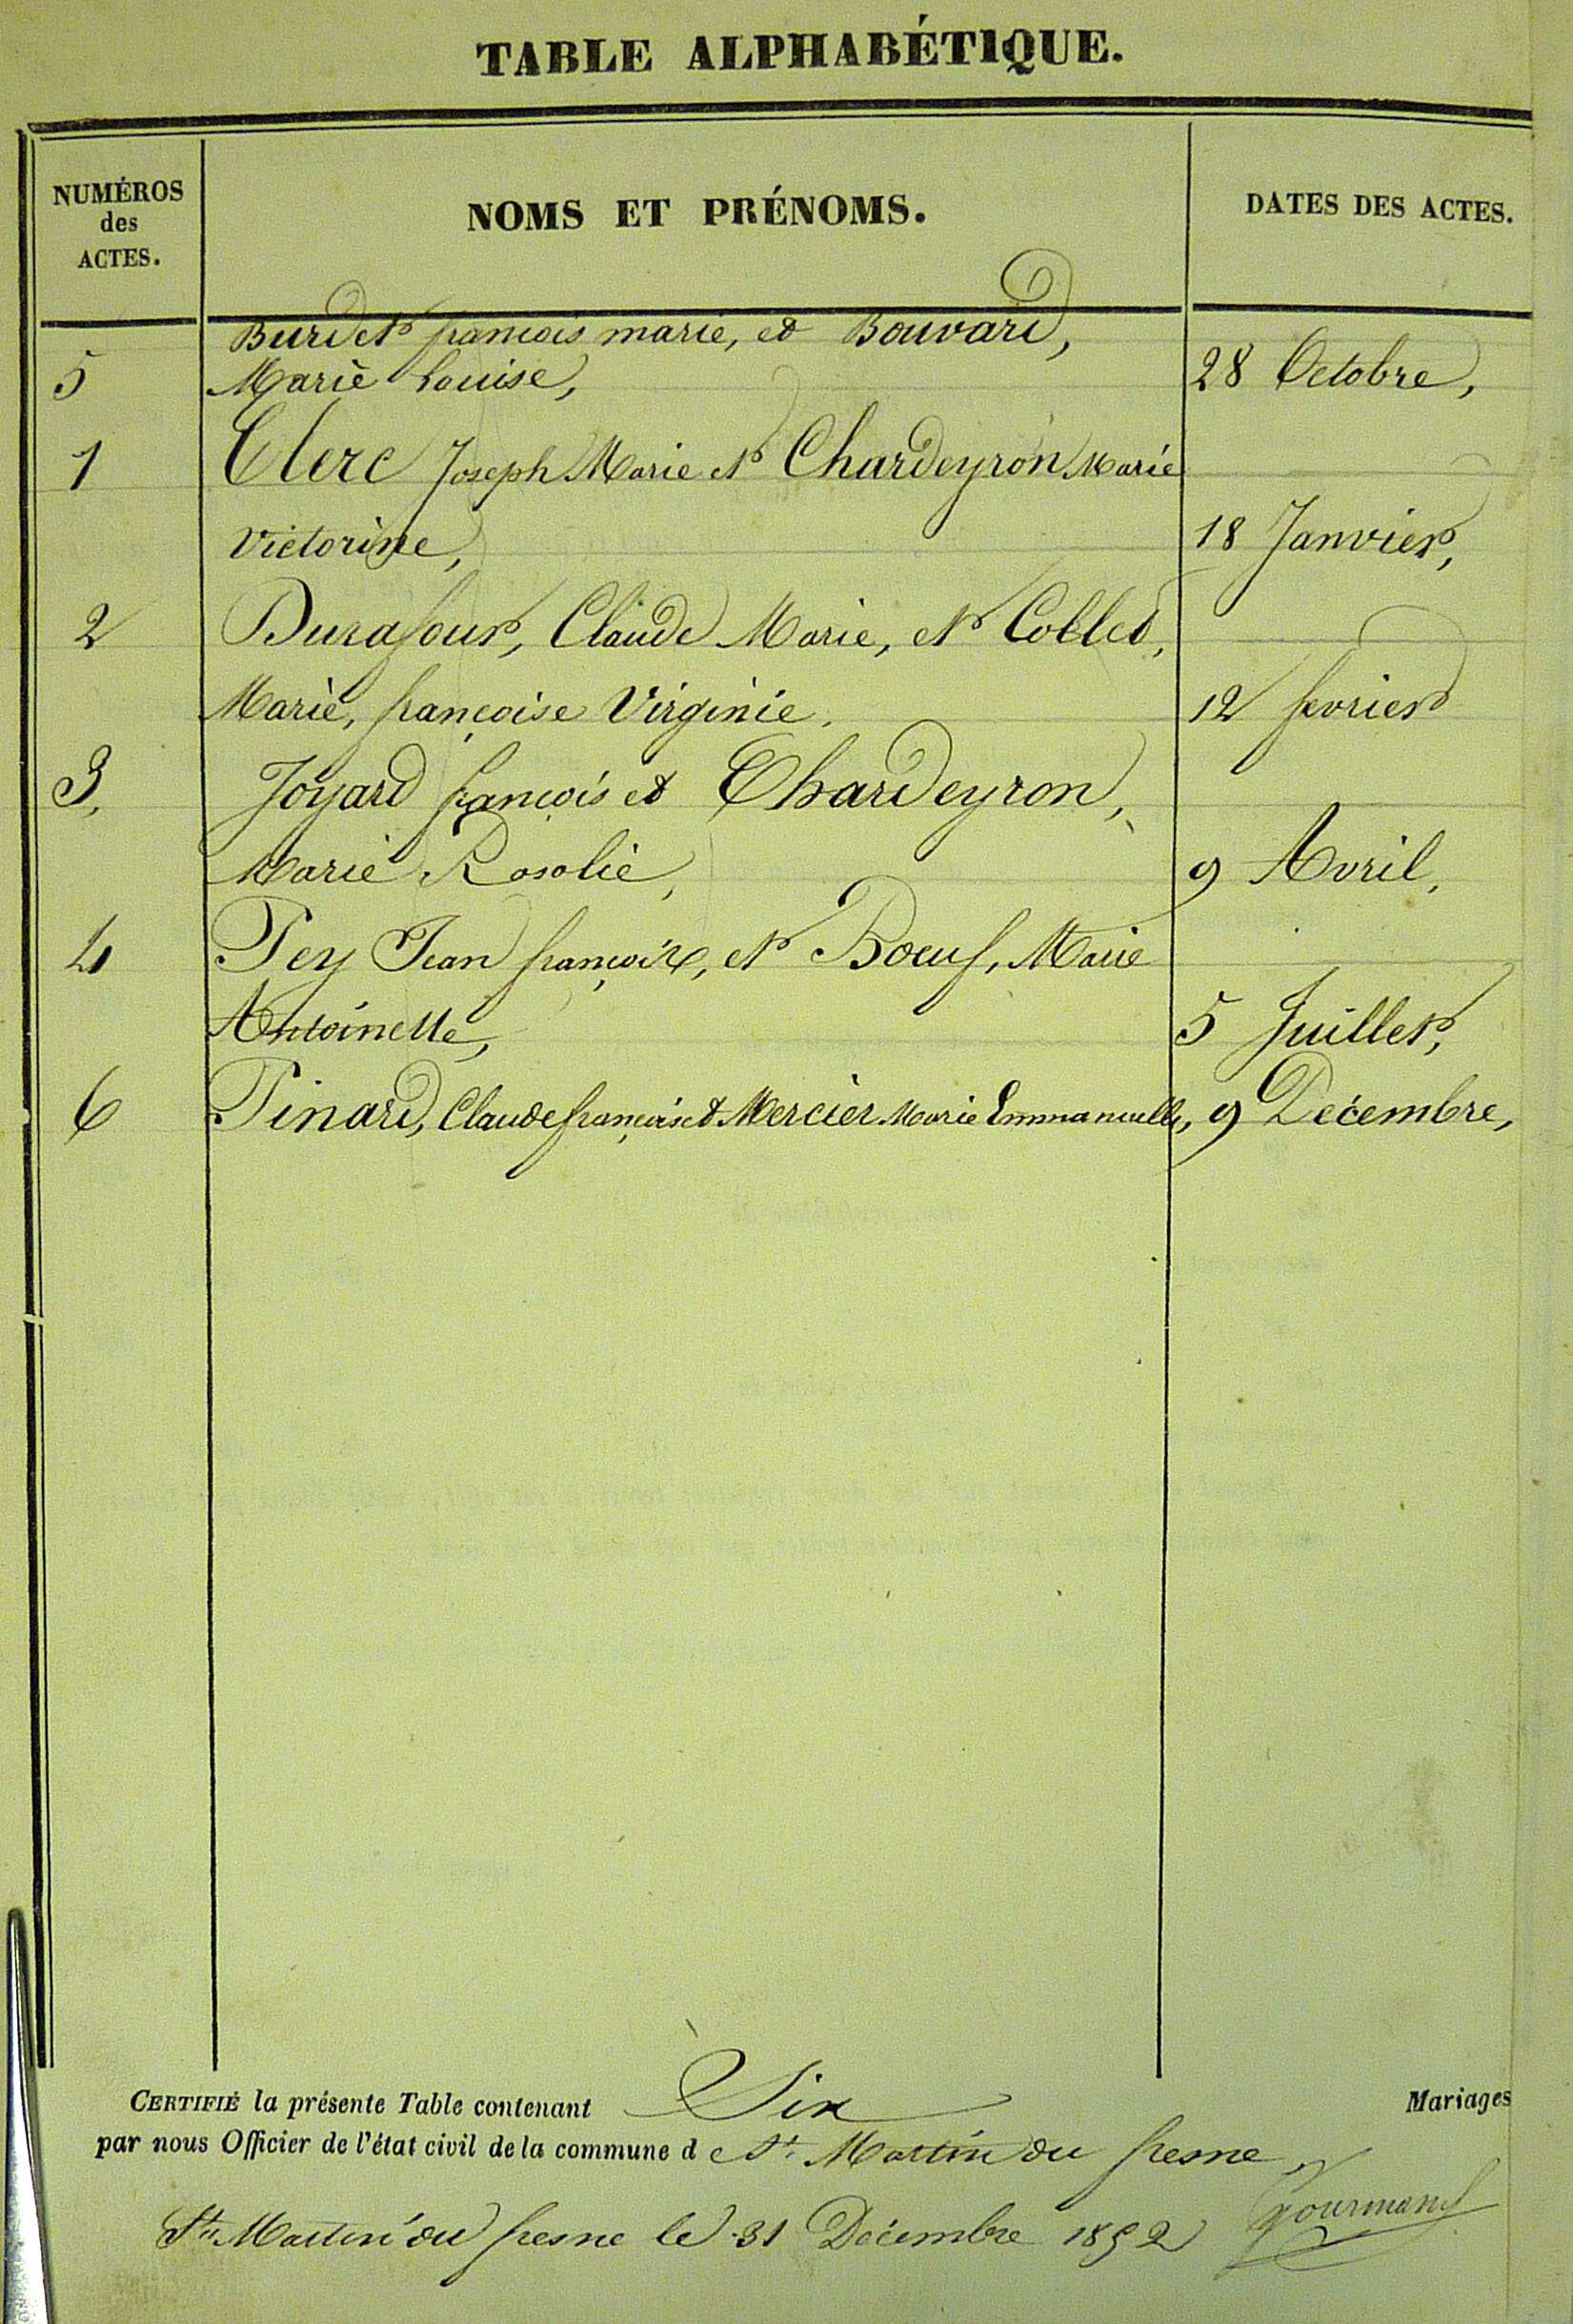 TABLE ALPHABÉTIQUE.
NUMÉROS
des
ACTES.
NOMS ET PRÉNOMS.
DATES DES ACTES.
Burdet françois marie, et Bouvard,
5 Marie Louise, 28 Octobre,
1 Clerc Joseph Marie et Chardeyron Marie
Victorine, 18 Janvier,
2 Durafour, Claude Marie, et Collet,
Marie, françoise Virginie. 12 fevrier
3, Joyard françois et Chardeyron,
Marie Rosalie, 9 Avril,
4 Pey Jean françois, et Bœuf, Marie
Antoinette, 5 Juillet,
6 Pinard, Claude françois et Mercier Marie Emmanuelle, 9 Décembre,
CERTIFIÉ la présente Table contenant Six Mariages
par nous Officier de l'état civil de la commune d e St. Martin du fresne
St. Martin du fresne le 31 Décembre 1852